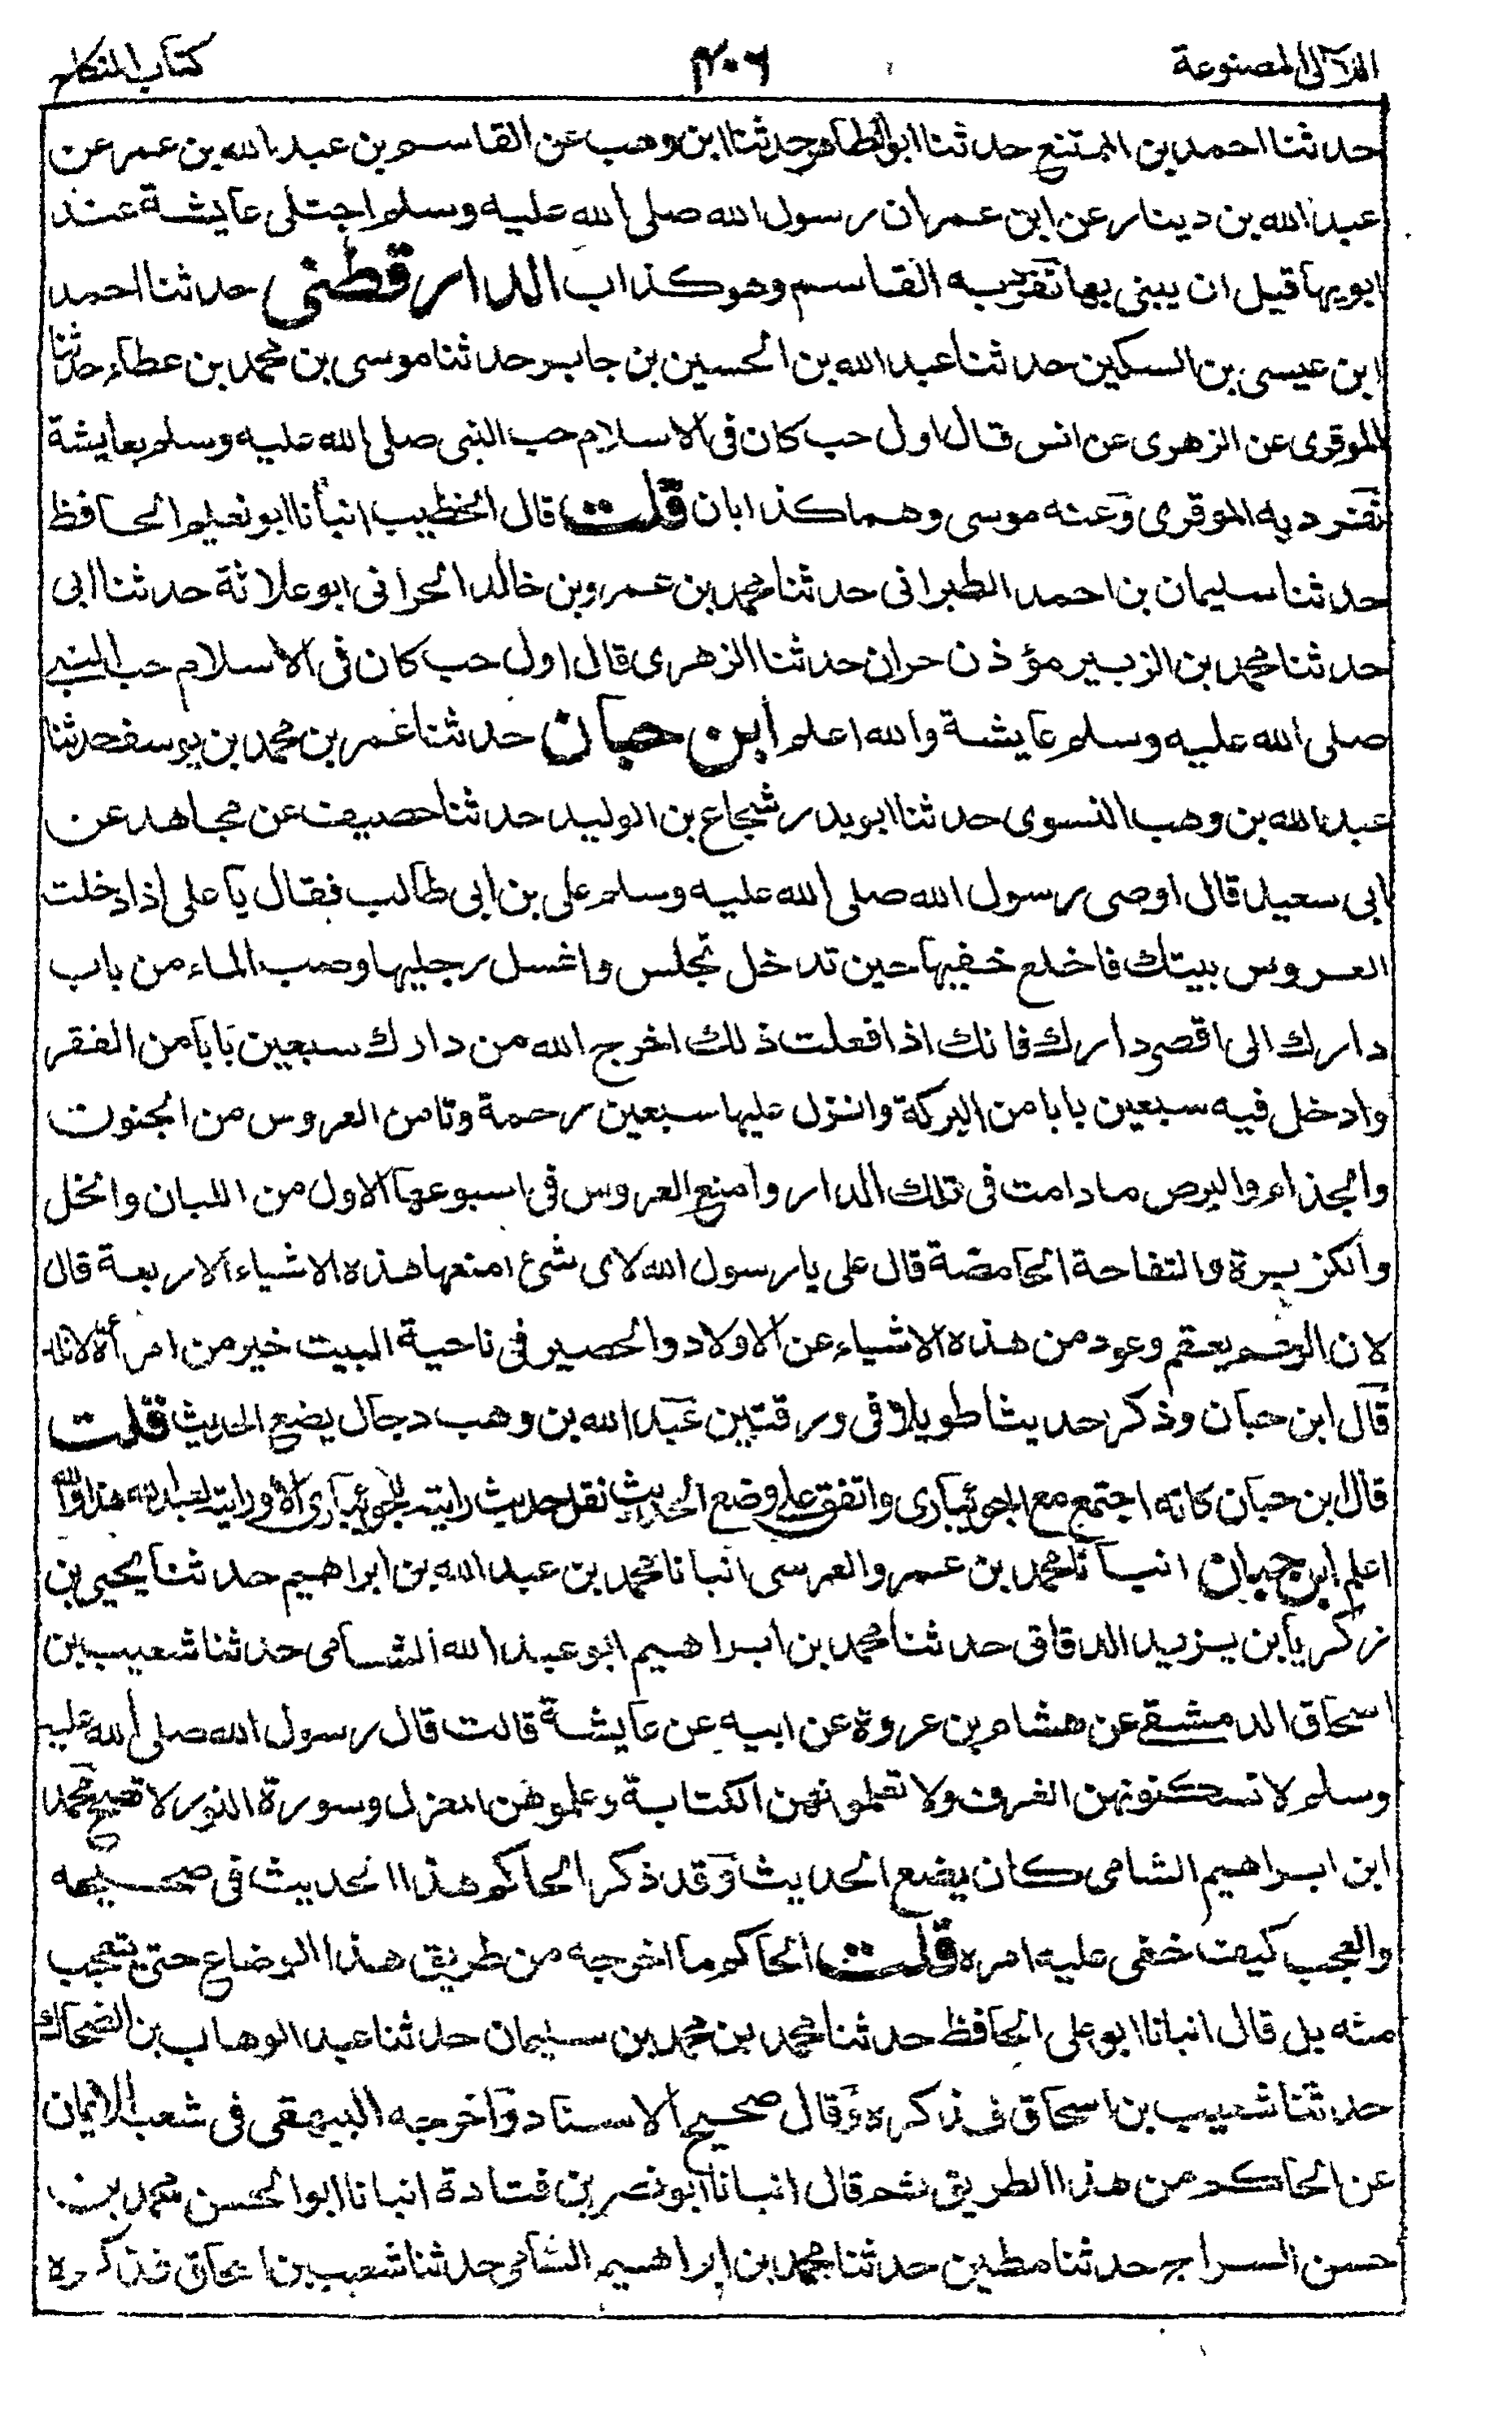 اللآلى المصنوعة ٢٠٦ كتاب النكاح
حدثنا احمد بن الممتنع حدثنا ابو الطاهر حدثنا ابن وهب عن القاسم بن عبد الله بن عمر عن
عبد الله بن دينار عن ابن عمر ان رسول الله صلى الله عليه وسلم اجتلى عايشة عند
ابويها قبل ان يبنى بها تفرد به القاسم وهو كذاب الدارقطنى حدثنا احمد
ابن عيسى بن السكين حدثنا عبد الله بن الحسين بن جابر حدثنا موسى بن محمد بن عطاء حدثنا
الموقرى عن الزهرى عن انس قال اول حب كان فى الاسلام حب النبى صلى الله عليه وسلم بعايشة
تفرد به الموقرى وعنه موسى وهما كذابان قلت قال الخطيب انبأنا ابو نعيم الحافظ
حدثنا سليمان بن احمد الطبرانى حدثنا محمد بن عمرو بن خالد الحرانى ابو علاثة حدثنا ابى
حدثنا محمد بن الزبير مؤذن حران حدثنا الزهرى قال اول حب كان فى الاسلام حب النبى
صلى الله عليه وسلم عايشة والله اعلم ابن حبان حدثنا عمر بن محمد بن يوسف حدثنا
عبد الله بن وهب النسوى حدثنا ابو بدر شجاع بن الوليد حدثنا خصيف عن مجاهد عن
ابى سعيد قال اوصى رسول الله صلى الله عليه وسلم على بن ابى طالب فقال يا على اذا دخلت
العروس بيتك فاخلع خفيها حين تدخل تجلس واغسل رجليها وصب الماء من باب
دارك الى اقصى دارك فانك اذا فعلت ذلك اخرج الله من دارك سبعين بابا من الفقر
وادخل فيه سبعين بابا من البركة وانزل عليها سبعين رحمة وتامن العروس من الجنون
والجذام والبرص ما دامت فى تلك الدار وامنع العروس فى اسبوعها الاول من اللبان والخل
والكزبرة والتفاحة الحامضة قال على يا رسول الله لاى شئ امنعها هذه الاشياء الاربعة قال
لان الرحم يعقم وعود من هذه الاشياء عن الاولاد والحصير فى ناحية البيت خير من امرأة لا تلد
قال ابن حبان وذكر حديثا طويلا فى ورقتين عبد الله بن وهب دجال يضع الحديث قلت
قال ابن حبان كانه اجتمع مع الجوئبارى واتفق على وضع الحديث نقل حديث رايته للجوئبارى الا ورايته لعبد الله هذا والله
اعلم ابن حبان انبأنا محمد بن عمرو العرسى انبانا محمد بن عبد الله بن ابراهيم حدثنا يحيى بن
زكريا بن يزيد الدقاق حدثنا محمد بن ابراهيم ابو عبد الله الشامى حدثنا شعيب بن
اسحاق الدمشقى عن هشام بن عروة عن ابيه عن عايشة قالت قال رسول الله صلى الله عليه
وسلم لا تسكنونهن الغرف ولا تعلمونهن الكتابة وعلموهن المغزل وسورة النور لا تصح محمد
ابن ابراهيم الشامى كان يضع الحديث وقد ذكر الحاكم هذا الحديث فى صحيحه
والعجب كيف خفى عليه امره قلت الحاكم ما اخرجه من طريق هذا الوضاع حتى يتعجب
منه بل قال انبانا ابو على الحافظ حدثنا محمد بن محمد بن سليمان حدثنا عبد الوهاب بن الضحاك
حدثنا شعيب بن اسحاق فذكره وقال صحيح الاسناد واخرجه البيهقى فى شعب الايمان
عن الحاكم من هذا الطريق ثم قال انبانا ابو نصر بن قتادة انبانا ابو الحسن محمد بن
حسن السراج حدثنا مطين حدثنا محمد بن ابراهيم الشامى حدثنا شعيب بن اسحاق فذكره